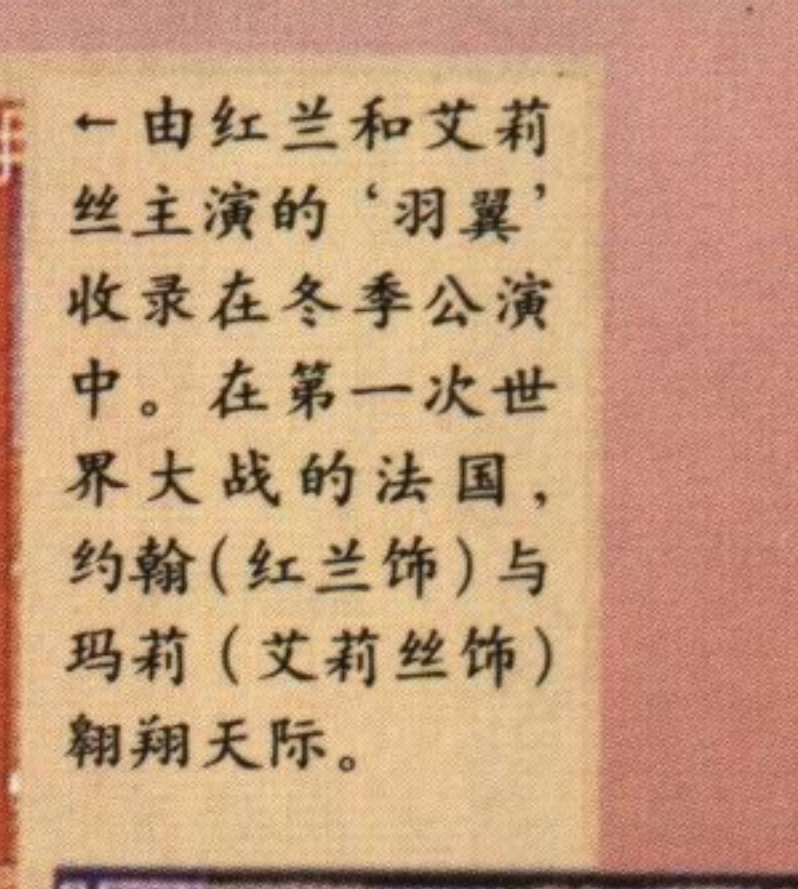 ←由红兰和艾莉
丝主演的‘羽翼’
收录在冬季公演
中。在第一次世
界大战的法国，
约翰（红兰饰）与
玛莉（艾莉丝饰）
翱翔天际。